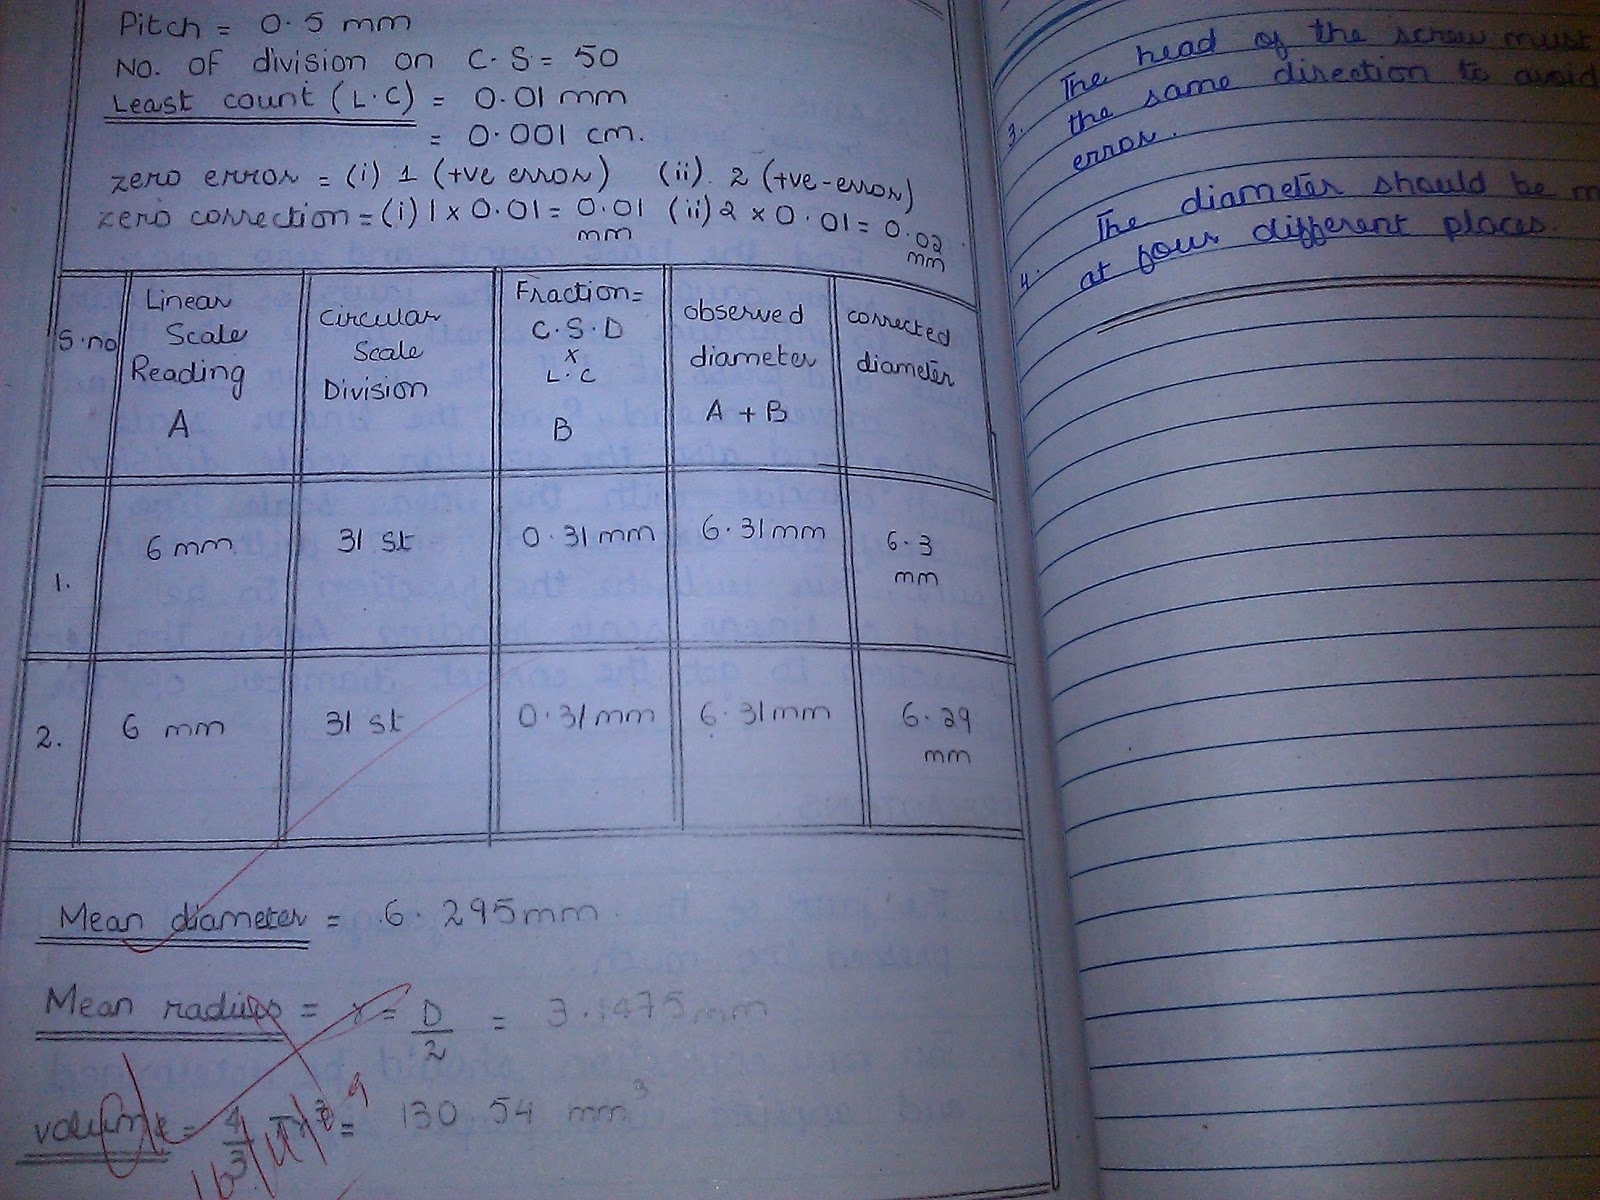 Pitch = 0.5 mm
No. of division on C.S = 50
Least count (L.C) = 0.01 mm
= 0.001 cm.
zero error = (i) 1 (+ve error) (ii). 2 (+ve-error)
zero correction = (i) 1 x 0.01 = 0.01 mm (ii) 2 x 0.01 = 0.02 mm
S.no
Linear Scale Reading A
Circular Scale Division
Fraction= C.S.D x L.C B
observed diameter A + B
corrected diameter
1. 6 mm 31 st 0.31 mm 6.31 mm 6.3 mm
2. 6 mm 31 st 0.31 mm 6.31 mm 6.29 mm
Mean diameter = 6.295 mm
Mean radius = r = D/2 = 3.1475 mm
volume = 4/3 πr³ = 130 54 mm³
The head of the screw must
3. the same direction to avoid
error.
The diameter should be m
4. at four different places.